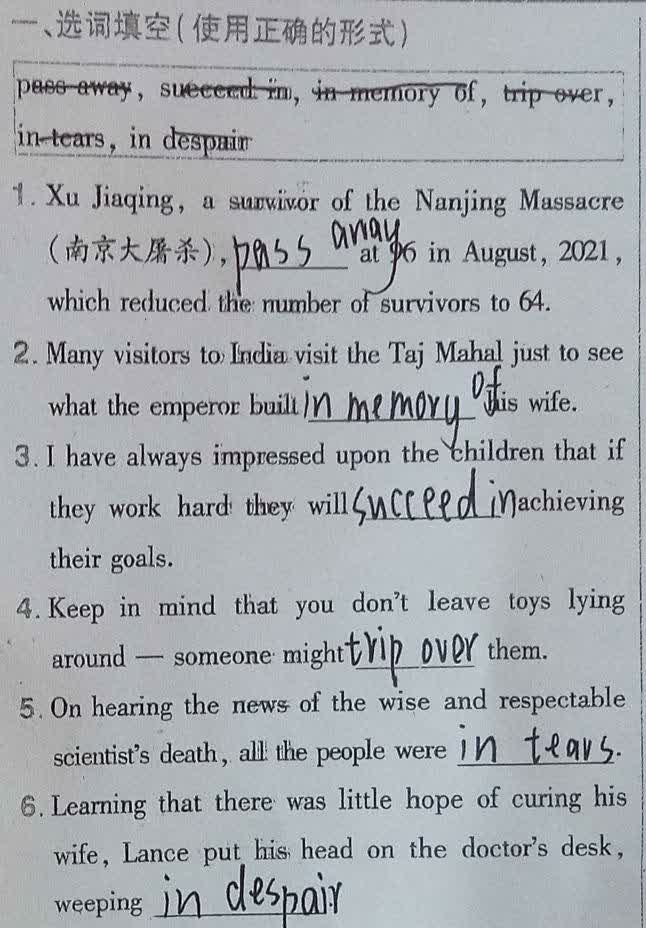 一、选词填空(使用正确的形式)
pass away, succeed in, in memory of, trip over,
in tears, in despair
1. Xu Jiaqing, a survivor of the Nanjing Massacre
(南京大屠杀), pass away at 96 in August, 2021,
which reduced the number of survivors to 64.
2. Many visitors to India visit the Taj Mahal just to see
what the emperor built in memory of his wife.
3. I have always impressed upon the children that if
they work hard they will succeed in achieving
their goals.
4. Keep in mind that you don't leave toys lying
around — someone might trip over them.
5. On hearing the news of the wise and respectable
scientist's death, all the people were in tears.
6. Learning that there was little hope of curing his
wife, Lance put his head on the doctor's desk,
weeping in despair